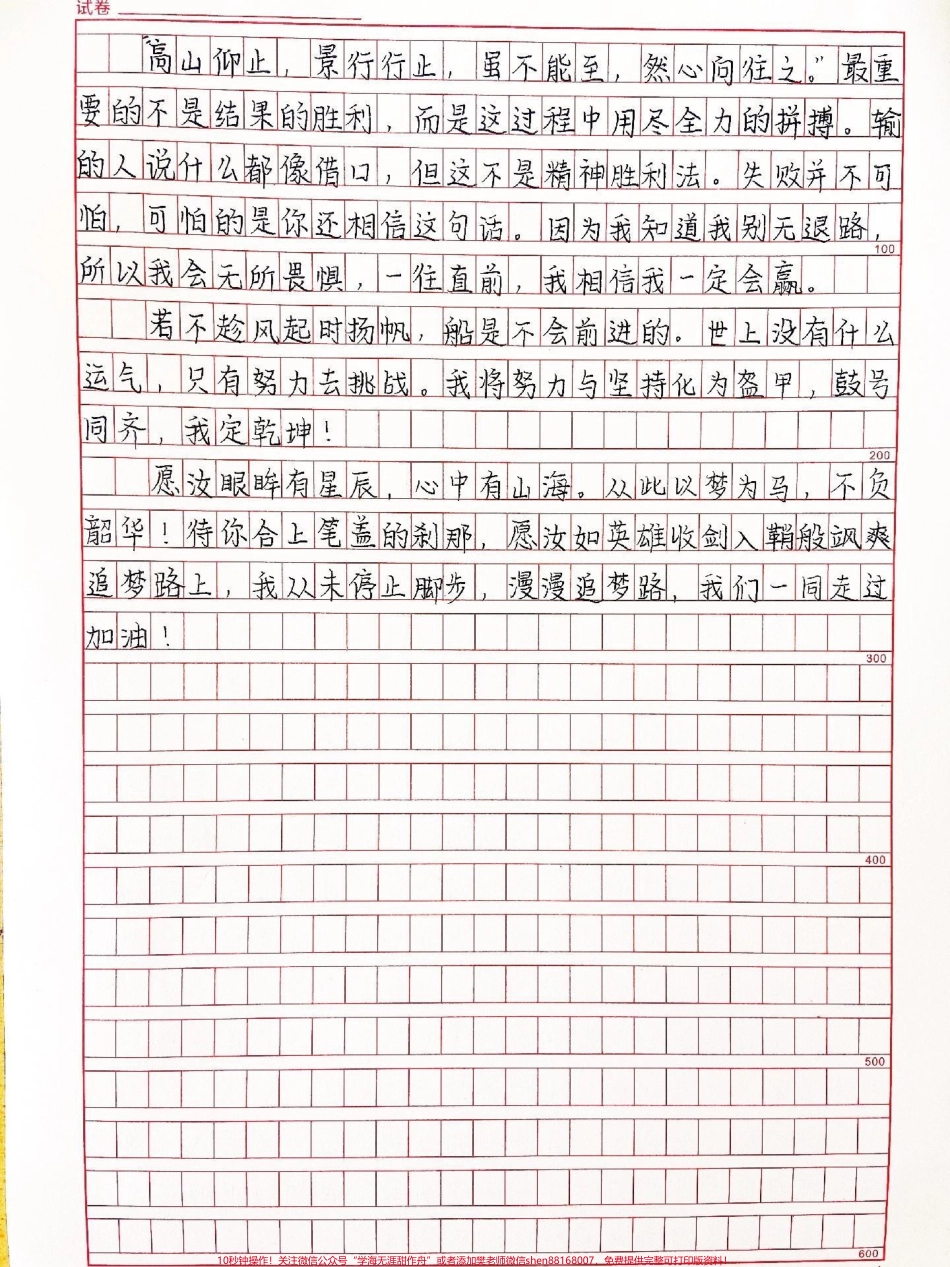 试卷
“高山仰止，景行行止，虽不能至，然心向往之。”最重
要的不是结果的胜利，而是这过程中用尽全力的拼搏。输
的人说什么都像借口，但这不是精神胜利法。失败并不可
怕，可怕的是你还相信这句话。因为我知道我别无退路，
100
所以我会无所畏惧，一往直前，我相信我一定会赢。
若不趁风起时扬帆，船是不会前进的。世上没有什么
运气，只有努力去挑战。我将努力与坚持化为盔甲，鼓号
同齐，我定乾坤！
200
愿汝眼眸有星辰，心中有山海。从此以梦为马，不负
韶华！待你合上笔盖的刹那，愿汝如英雄收剑入鞘般飒爽
追梦路上，我从未停止脚步，漫漫追梦路，我们一同走过
加油！
300
400
500
600
10秒钟操作！关注微信公众号“学海无涯甜作舟”或者添加樊老师微信shen88168007，免费提供完整可打印版资料！